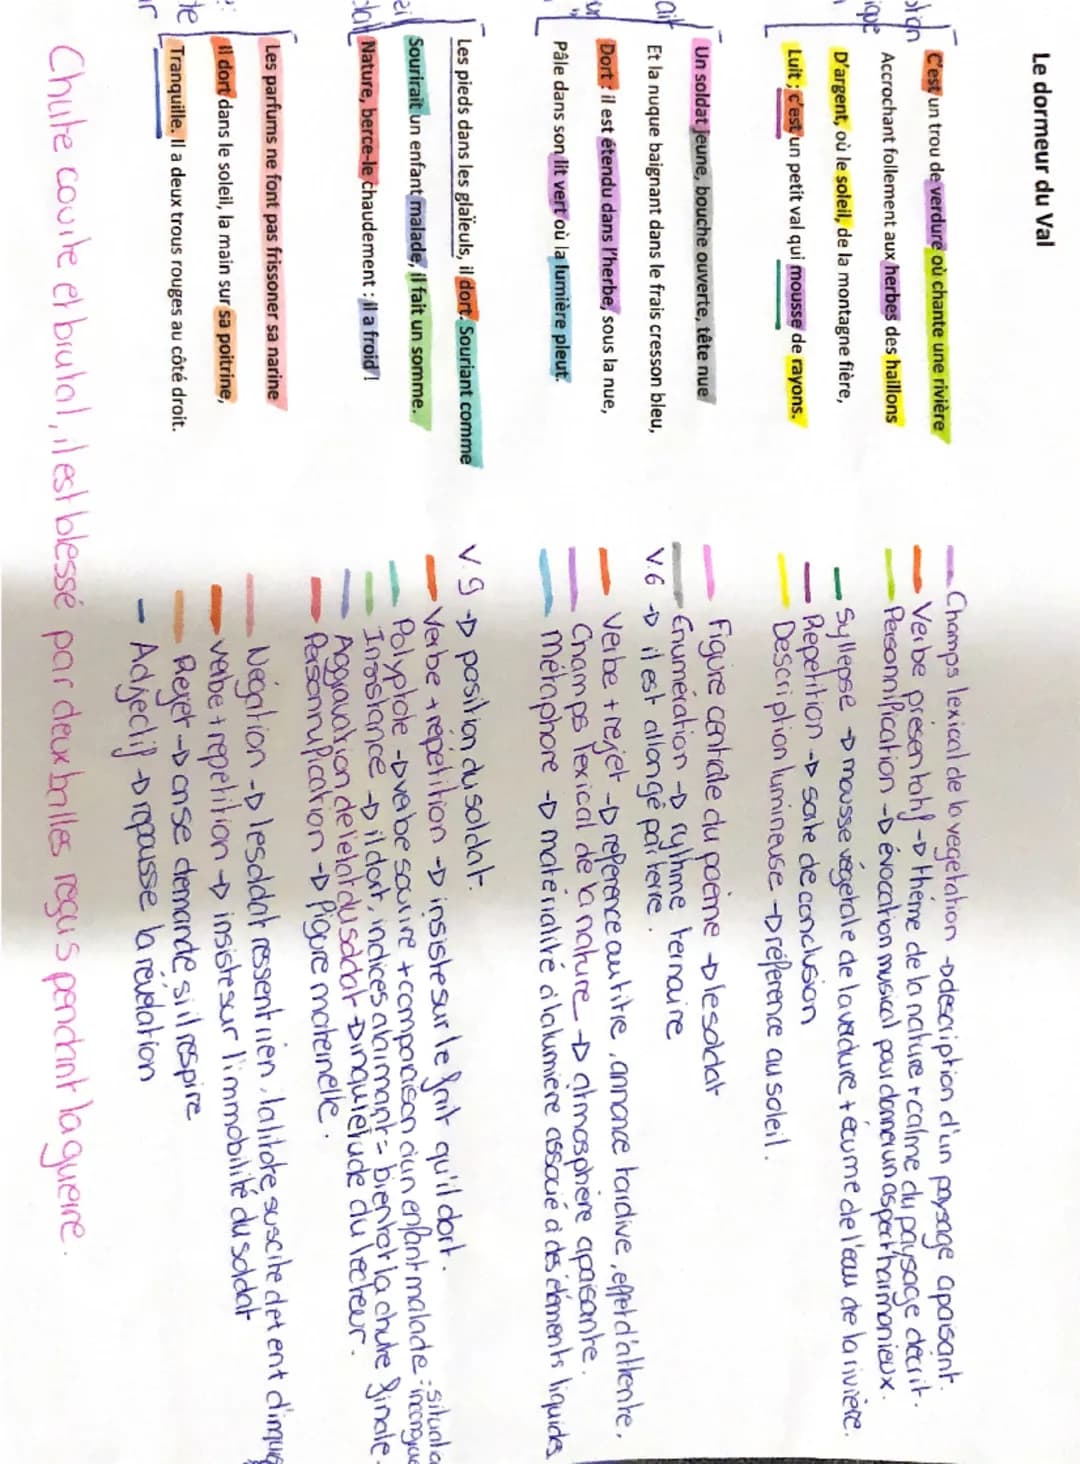 Le dormeur du Val
C'est un trou de verdure où chante une rivière
Accrochant follement aux herbes des haillons
D'argent, où le soleil, de la montagne fière,
Luit ; c'est un petit val qui mousse de rayons.
Un soldat jeune, bouche ouverte, tête nue
Et la nuque baignant dans le frais cresson bleu,
Dort : il est étendu dans l'herbe, sous la nue,
Pâle dans son lit vert où la lumière pleut.
Les pieds dans les glaïeuls, il dort. Souriant comme
Sourirait un enfant malade, il fait un somme.
Nature, berce-le chaudement : il a froid !
Les parfums ne font pas frissoner sa narine
Il dort dans le soleil, la main sur sa poitrine,
Tranquille. Il a deux trous rouges au côté droit.
Champs lexical de la vegetation → description d'un paysage apaisant.
Verbe présentatif → thème de la nature + calme du paysage décrit.
Personnification → évocation musical pour donner un aspect harmonieux.
Syllepse → mousse végétale de la verdure + écume de l'eau de la rivière.
Repetition → sorte de conclusion
Description lumineuse → référence au soleil.
Figure centrale du poème → le soldat
Énumération → rythme ternaire
V.6 → il est allongé par terre.
Verbe + rejet → reference au titre, annonce tardive, effet d'attente.
Champs lexical de la nature → atmosphère apaisante.
Métaphore → matérialité à la lumière associé à des éléments liquides
V.9 → position du soldat.
Verbe + répétition → insiste sur le fait qu'il dort.
Polyptote → verbe sourire + comparaison d'un enfant malade :
Insistance → il dort, indices alarmant = bientot la chute finale.
Aggravation de l'etat du soldat → inquietude du lecteur.
Personnification → figure maternelle.
Négation → le soldat ressent rien, la litote suscite
verbe + repetition → insiste sur l'immobilité du soldat
Rejet → on se demande si il respire
Adjectif → repousse la révelation
Chute courte et brutal, il est blessé par deux balles reçus pendant la guerre.